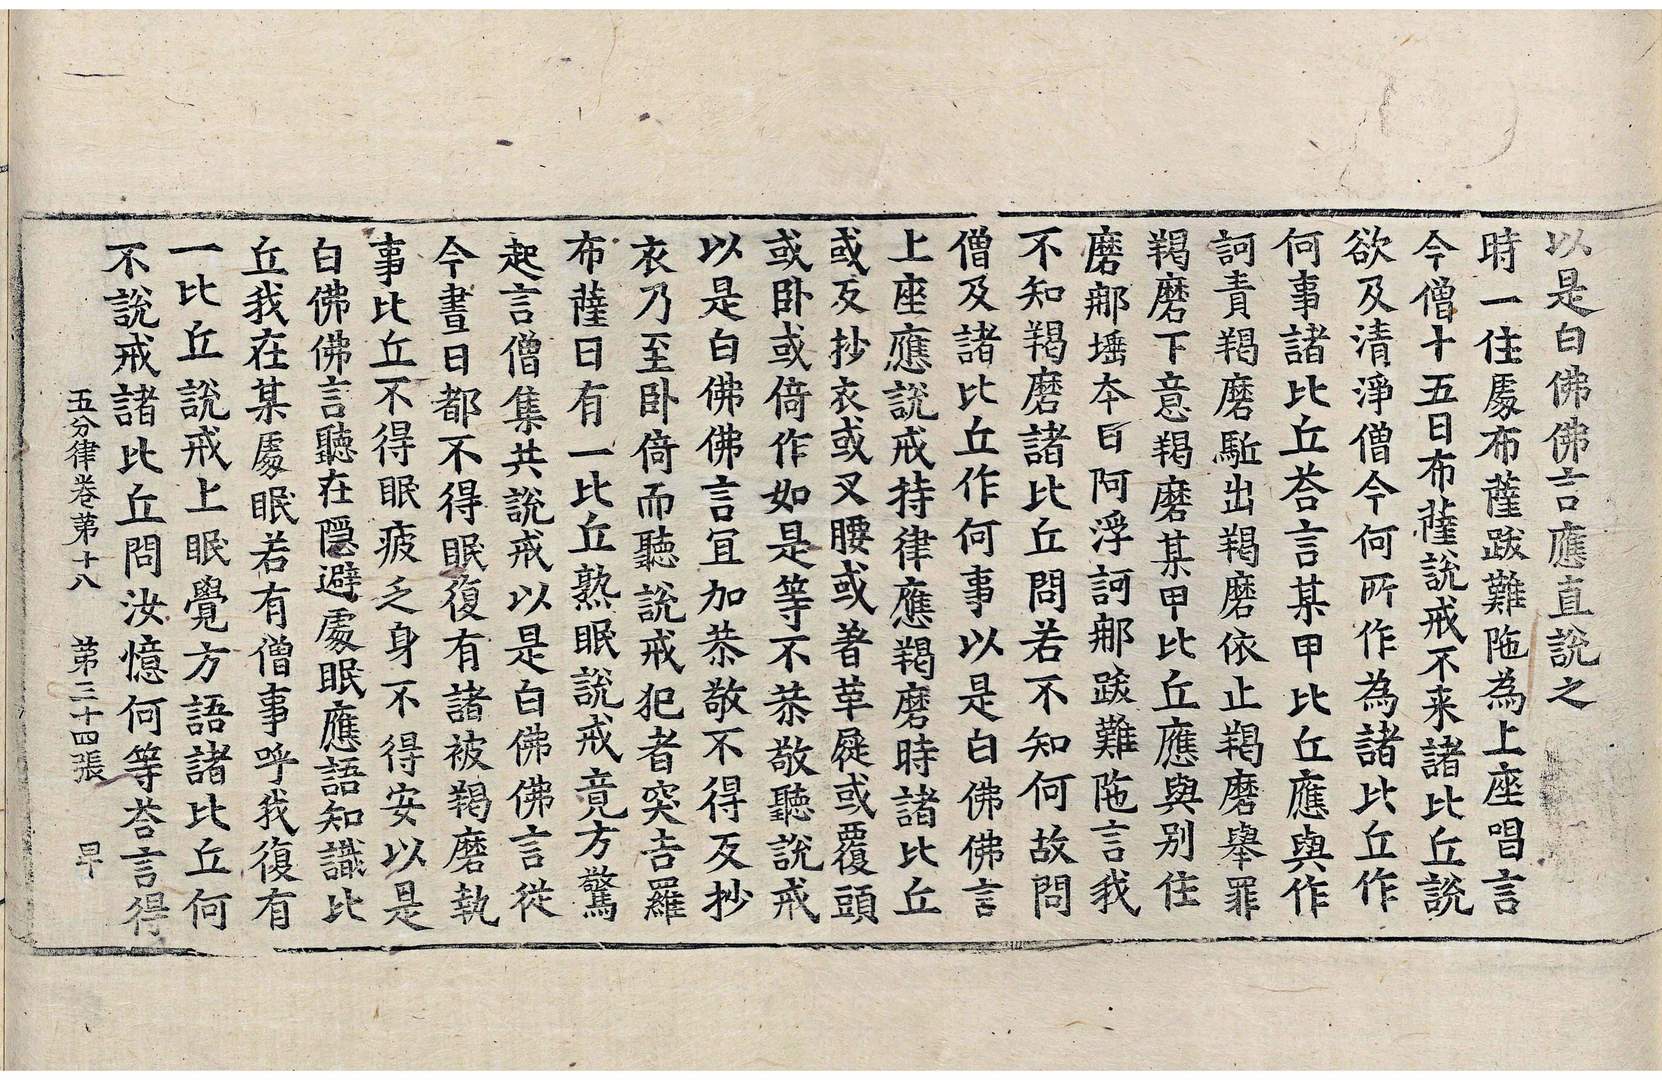 以是白佛佛言應直說之
時一住處布薩跋難陁為上座唱言
今僧十五日布薩說戒不来諸比丘說
欲及清淨僧今何所作為諸比丘作
何事諸比丘荅言某甲比丘應與作
訶責羯磨駈出羯磨依止羯磨舉罪
羯磨下意羯磨某甲比丘應與別住
磨那埵本日阿浮訶那跋難陁言我
不知羯磨諸比丘問若不知何故問
僧及諸比丘作何事以是白佛佛言
上座應說戒持律應羯磨時諸比丘
或反抄衣或叉腰或著革屣或覆頭
或卧或倚作如是等不恭敬聽說戒
以是白佛佛言冝加恭敬不得反抄
衣乃至卧倚而聽說戒犯者突吉羅
布薩日有一比丘熟眠說戒竟方驚
起言僧集共說戒以是白佛佛言従
今晝日都不得眠復有諸被羯磨執
事比丘不得眠疲乏身不得安以是
白佛佛言聽在隱避處眠應語知識比
丘我在某處眠若有僧事呼我復有
一比丘說戒上眠覺方語諸比丘何
不說戒諸比丘問汝憶何等荅言得
五分律卷第十八 第三十四張 早